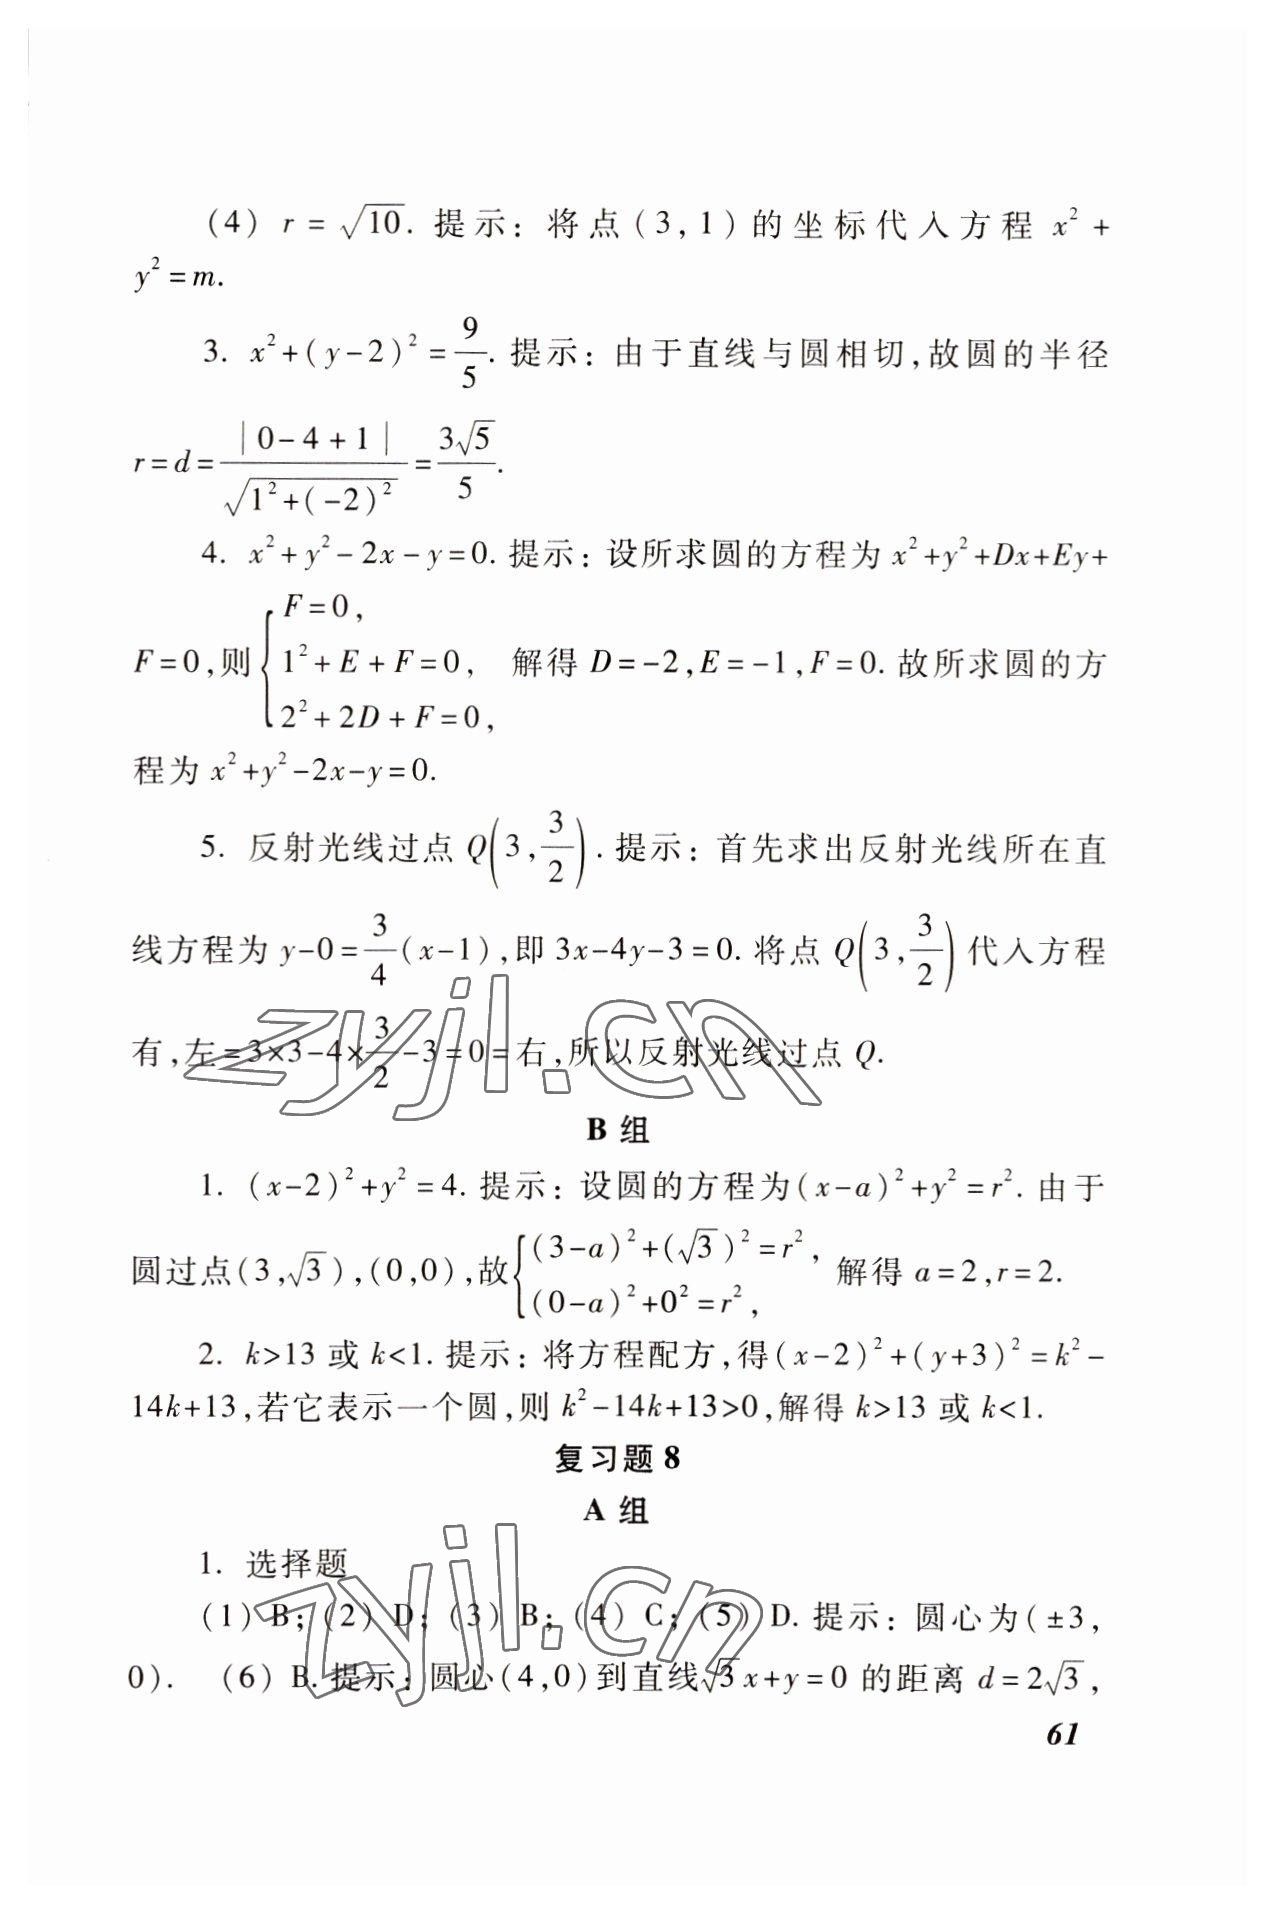 (4) r=√10. 提示：将点(3,1)的坐标代入方程 x²+
y²=m.
3. x²+(y-2)²=9/5. 提示：由于直线与圆相切,故圆的半径
r=d=|0-4+1|/√(1²+(-2)²)=3√5/5.
4. x²+y²-2x-y=0. 提示：设所求圆的方程为 x²+y²+Dx+Ey+
F=0,则{F=0, 1²+E+F=0, 2²+2D+F=0, 解得 D=-2,E=-1,F=0. 故所求圆的方
程为 x²+y²-2x-y=0.
5. 反射光线过点 Q(3,3/2). 提示：首先求出反射光线所在直
线方程为 y-0=3/4(x-1),即 3x-4y-3=0. 将点 Q(3,3/2)代入方程
有,左=3×3-4×3/2-3=0=右,所以反射光线过点 Q.
B 组
1. (x-2)²+y²=4. 提示：设圆的方程为(x-a)²+y²=r². 由于
圆过点(3,√3),(0,0),故{(3-a)²+(√3)²=r², (0-a)²+0²=r², 解得 a=2,r=2.
2. k>13 或 k<1. 提示：将方程配方,得(x-2)²+(y+3)²=k²-
14k+13,若它表示一个圆,则 k²-14k+13>0,解得 k>13 或 k<1.
复习题 8
A 组
1. 选择题
(1) B; (2) D; (3) B; (4) C; (5) D. 提示：圆心为(±3,
0). (6) B. 提示：圆心(4,0)到直线√3x+y=0 的距离 d=2√3,
61
zyjl.cn
zyjl.cn